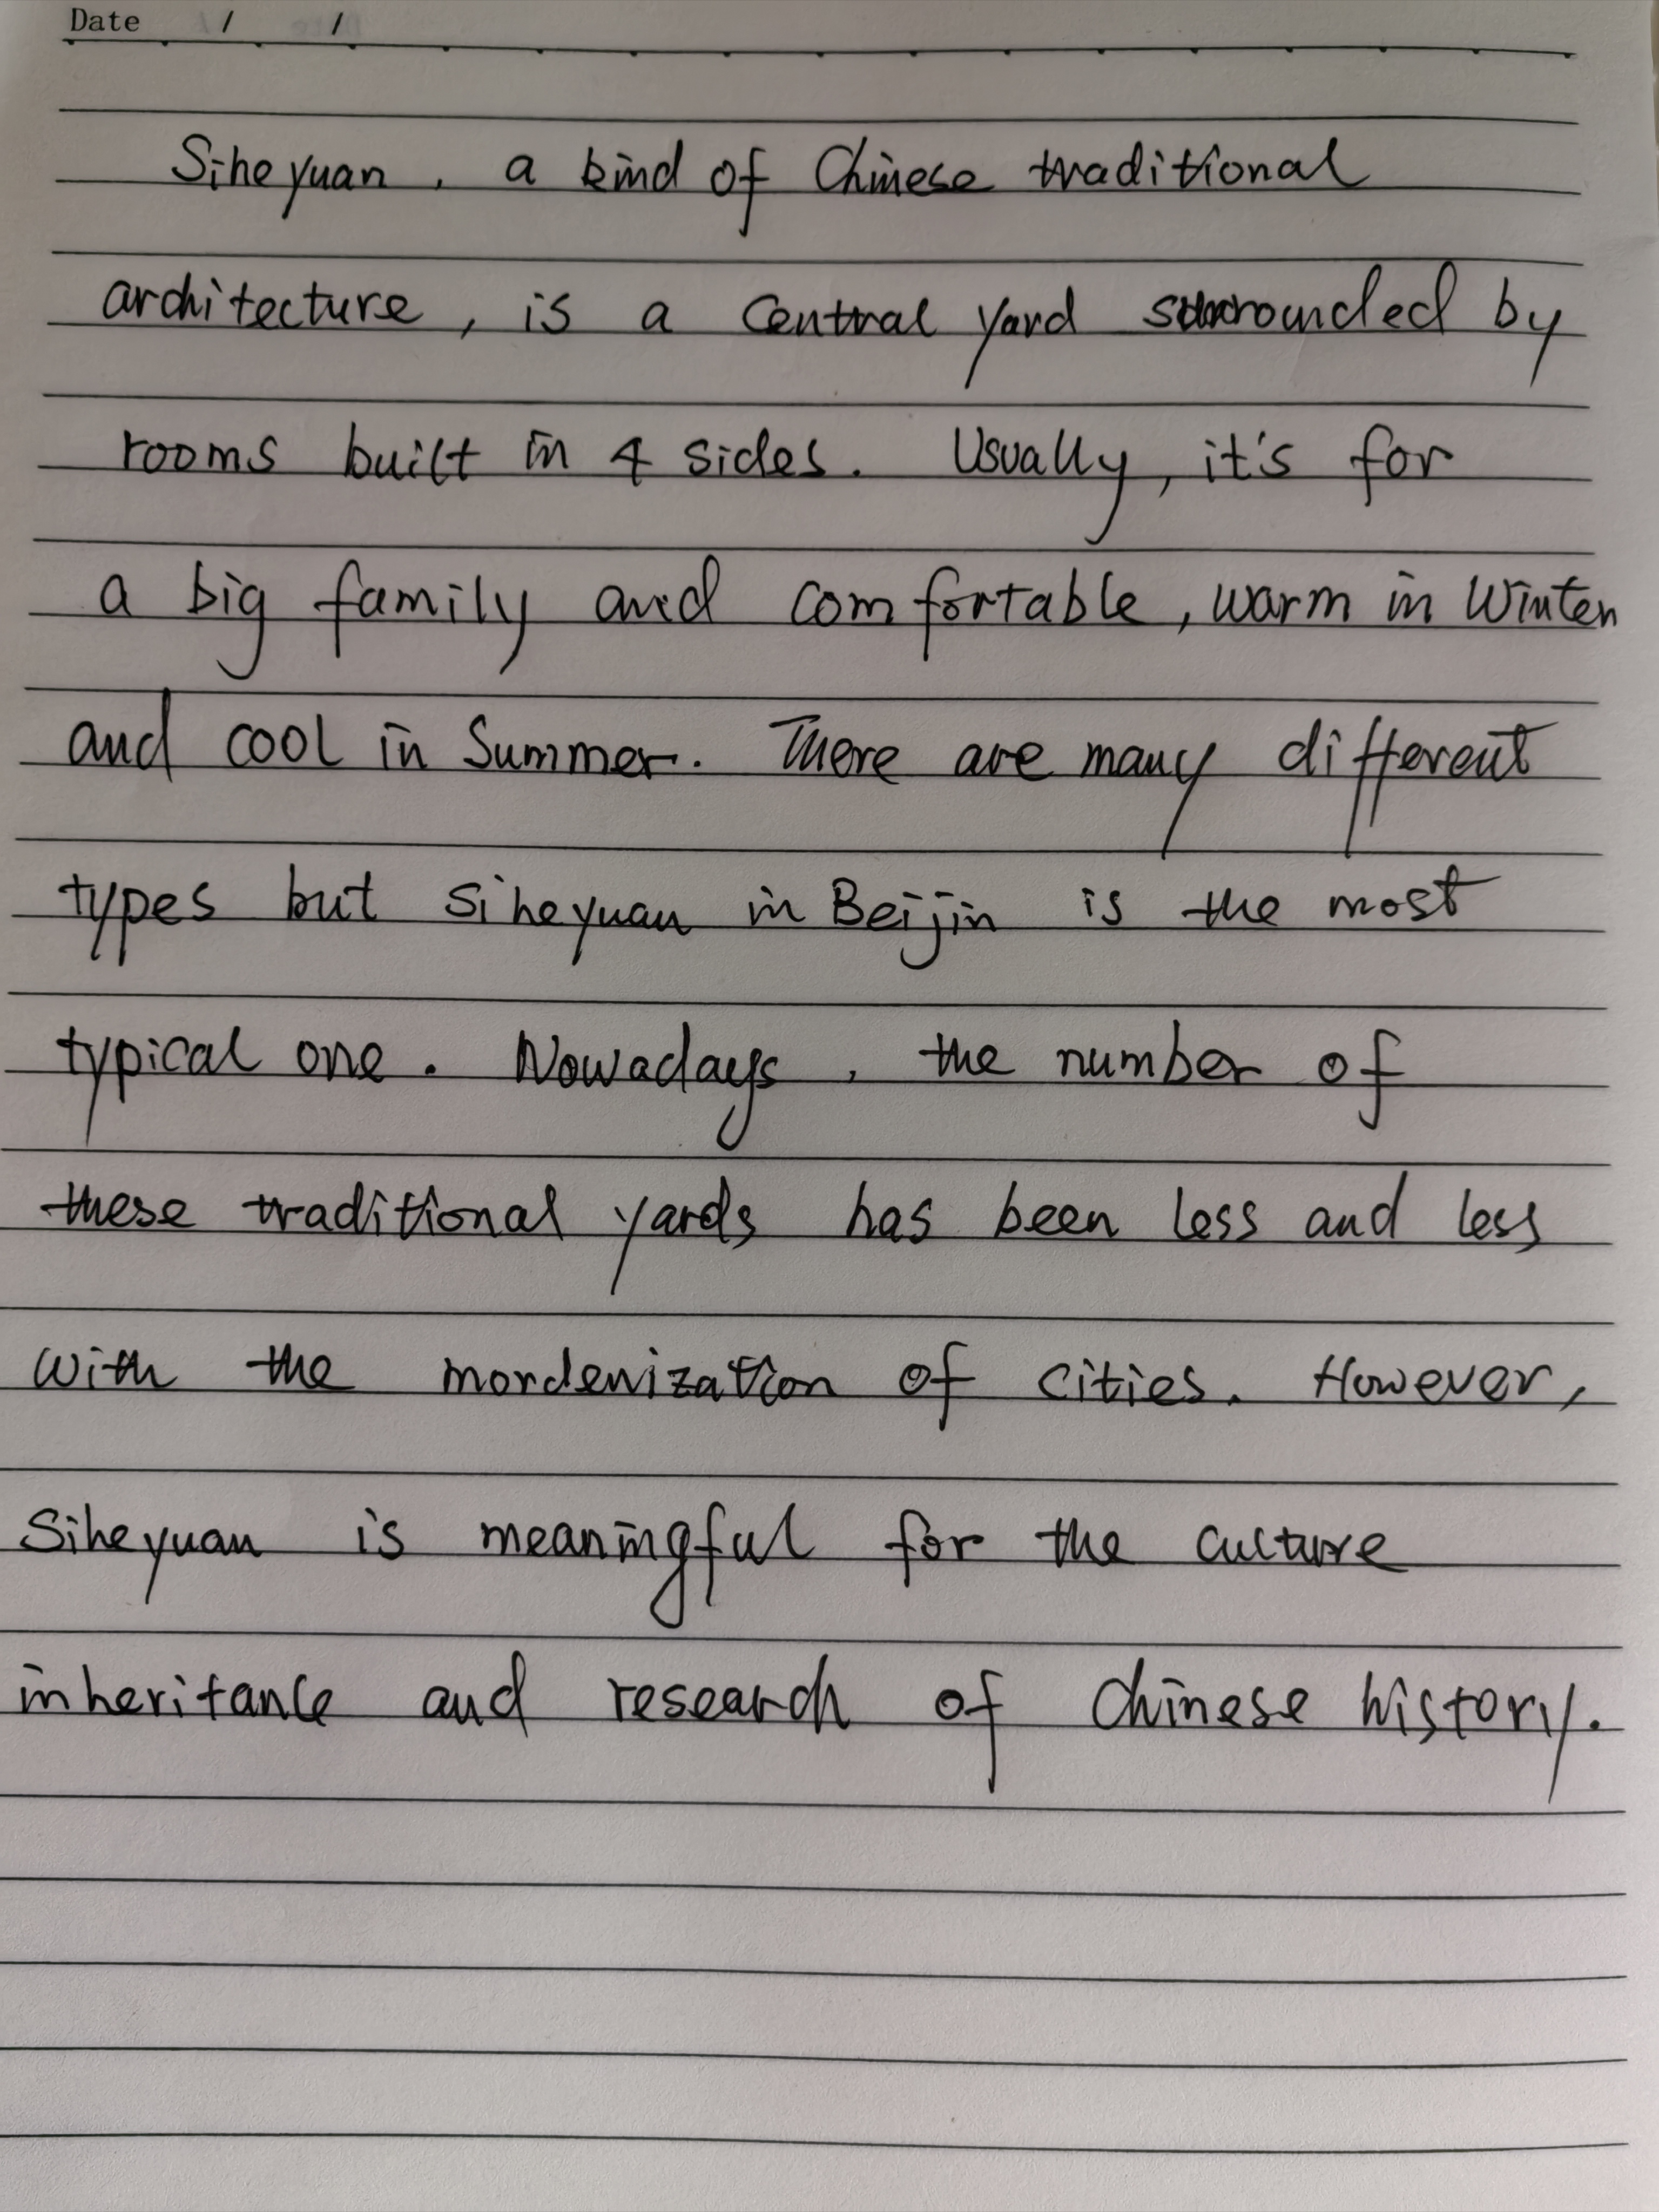 Date / /
Siheyuan, a kind of Chinese traditional
architecture, is a central yard surrounded by
rooms built in 4 sides. Usually, it's for
a big family and comfortable, warm in Winter
and cool in Summer. There are many different
types but Siheyuan in Beijin is the most
typical one. Nowadays, the number of
these traditional yards has been less and less
with the mordenization of cities. However,
Siheyuan is meaningful for the culture
inheritance and research of Chinese history.